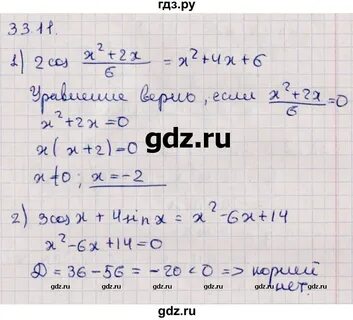 гдз.ру
33.11.
1) 2cos (x²+2x)/6 = x²+4x+6
Уравнение верно, если (x²+2x)/6 = 0
x²+2x=0
x(x+2)=0
x≠0; x=-2
gdz.ru
2) 3cosx + 4sinx = x²-6x+14
x²-6x+14=0
D = 36-56 = -20 < 0 => корней
нет.
gdz.ru
gdz.ru
gdz.ru
gdz.ru